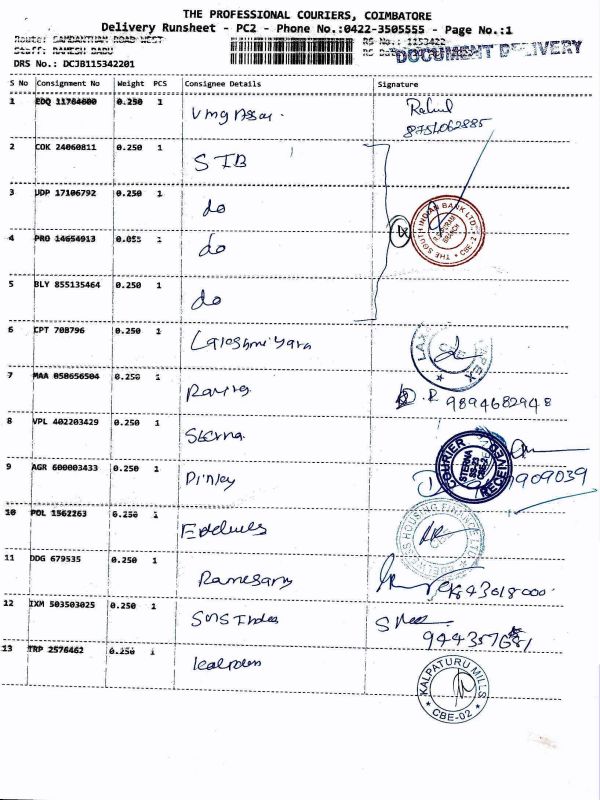 THE PROFESSIONAL COURIERS, COIMBATORE
Delivery Runsheet - PC2 - Phone No.:0422-3505555 - Page No.:1
Route: SAMBANTHAM ROAD WEST
RS No.: 1153422
Staff: RAMESH BABU
DOCUMENT DELIVERY
DRS No.: DCJB115342201
S No Consignment No Weight PCS Consignee Details Signature
1 EDQ 11764600 0.250 1
Rahul
8754062885
2 COK 24060811 0.250 1 STB
3 UDP 17106792 0.250 1 do
4 PRO 14654913 0.055 1 do
THE SOUTH INDIAN BANK LTD. CBE-2
BRANCH
5 BLY 855135464 0.250 1 do
6 CPT 708796 0.250 1
7 MAA 058656504 0.250 1
9894682948
8 VPL 402203429 0.250 1 Sterna
COURIER RECEIVED
9 AGR 600003433 0.250 1
909039
10 POL 1562263 0.250 1
HOUSING FINANCE LTD
11 DDG 679535 0.250 1
43018000
12 IXM 503503025 0.250 1 SMS
13 TRP 2576462 0.250 1
KALPATURU MILLS
CBE-02